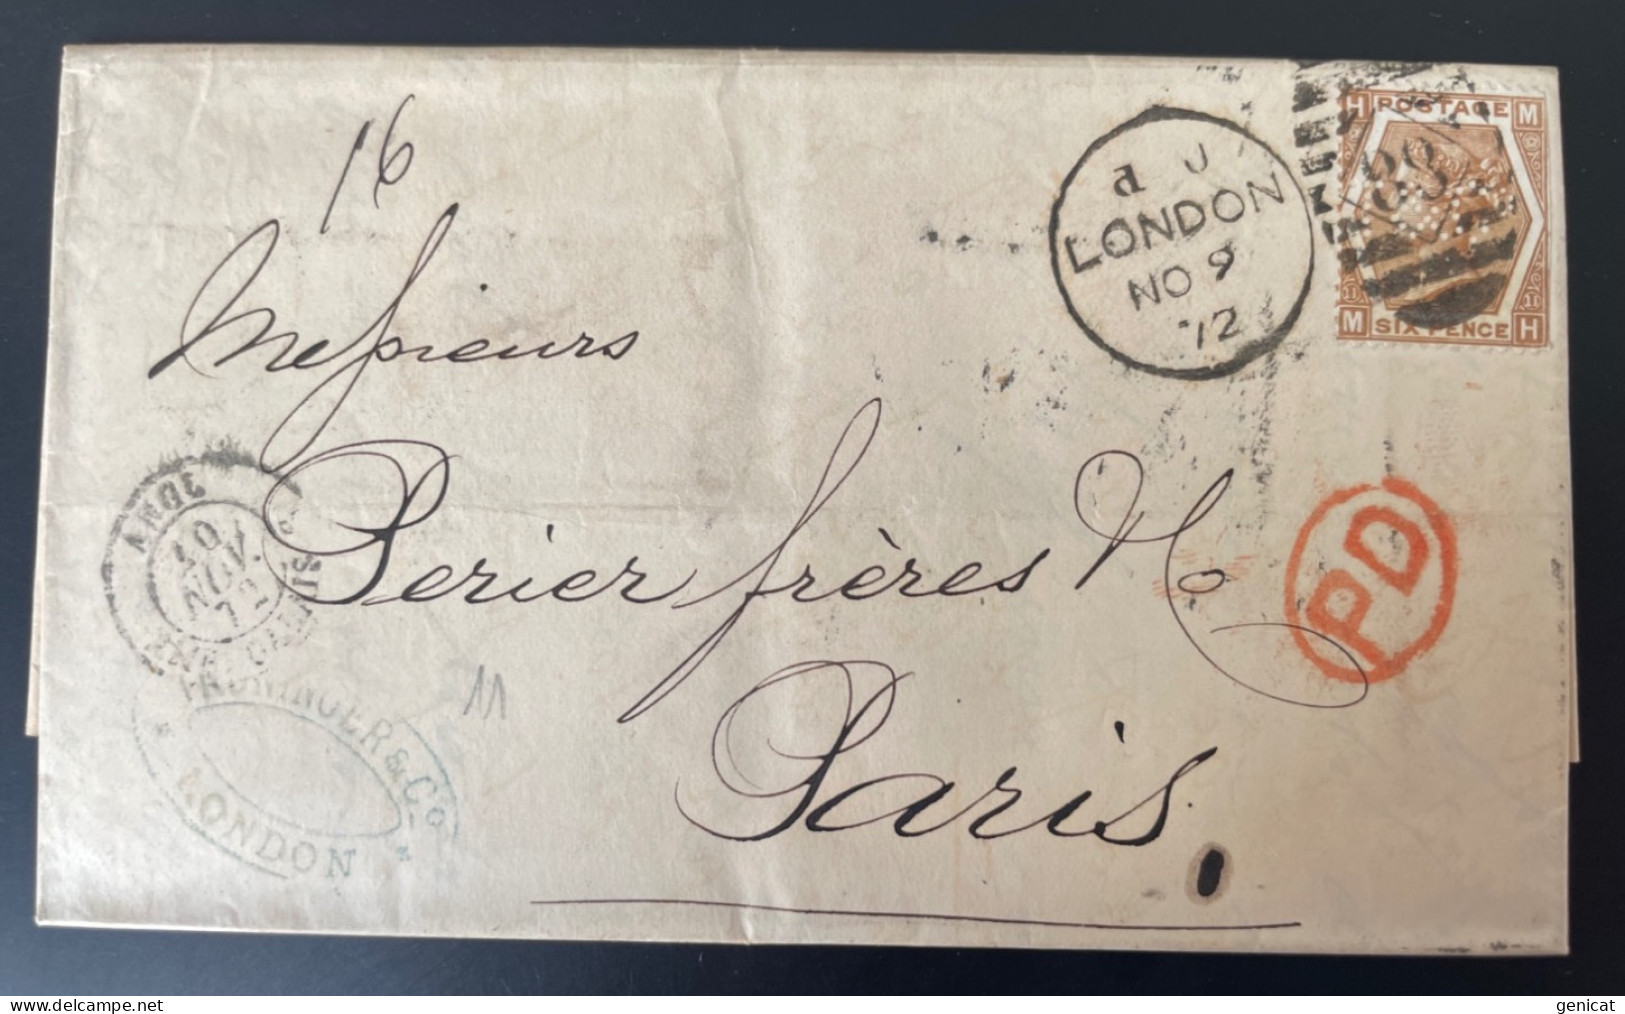 16
d U
LONDON
NO 9
72
H POSTAGE M
88
11 11
M SIX PENCE H
Messieurs
Perier frères & Co
Paris.
PD
10
NOV.
72
CALAIS
11
& Co
LONDON
genicat